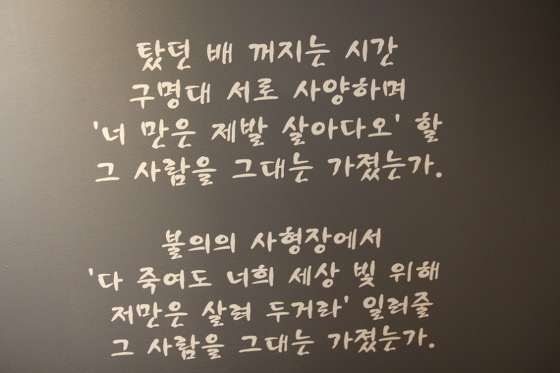 탔던 배 꺼지는 시간
구명대 서로 사양하며
'너 만은 제발 살아다오' 할
그 사람을 그대는 가졌는가.
불의의 사형장에서
'다 죽여도 너희 세상 빛 위해
저만은 살려 두거라' 일러줄
그 사람을 그대는 가졌는가.